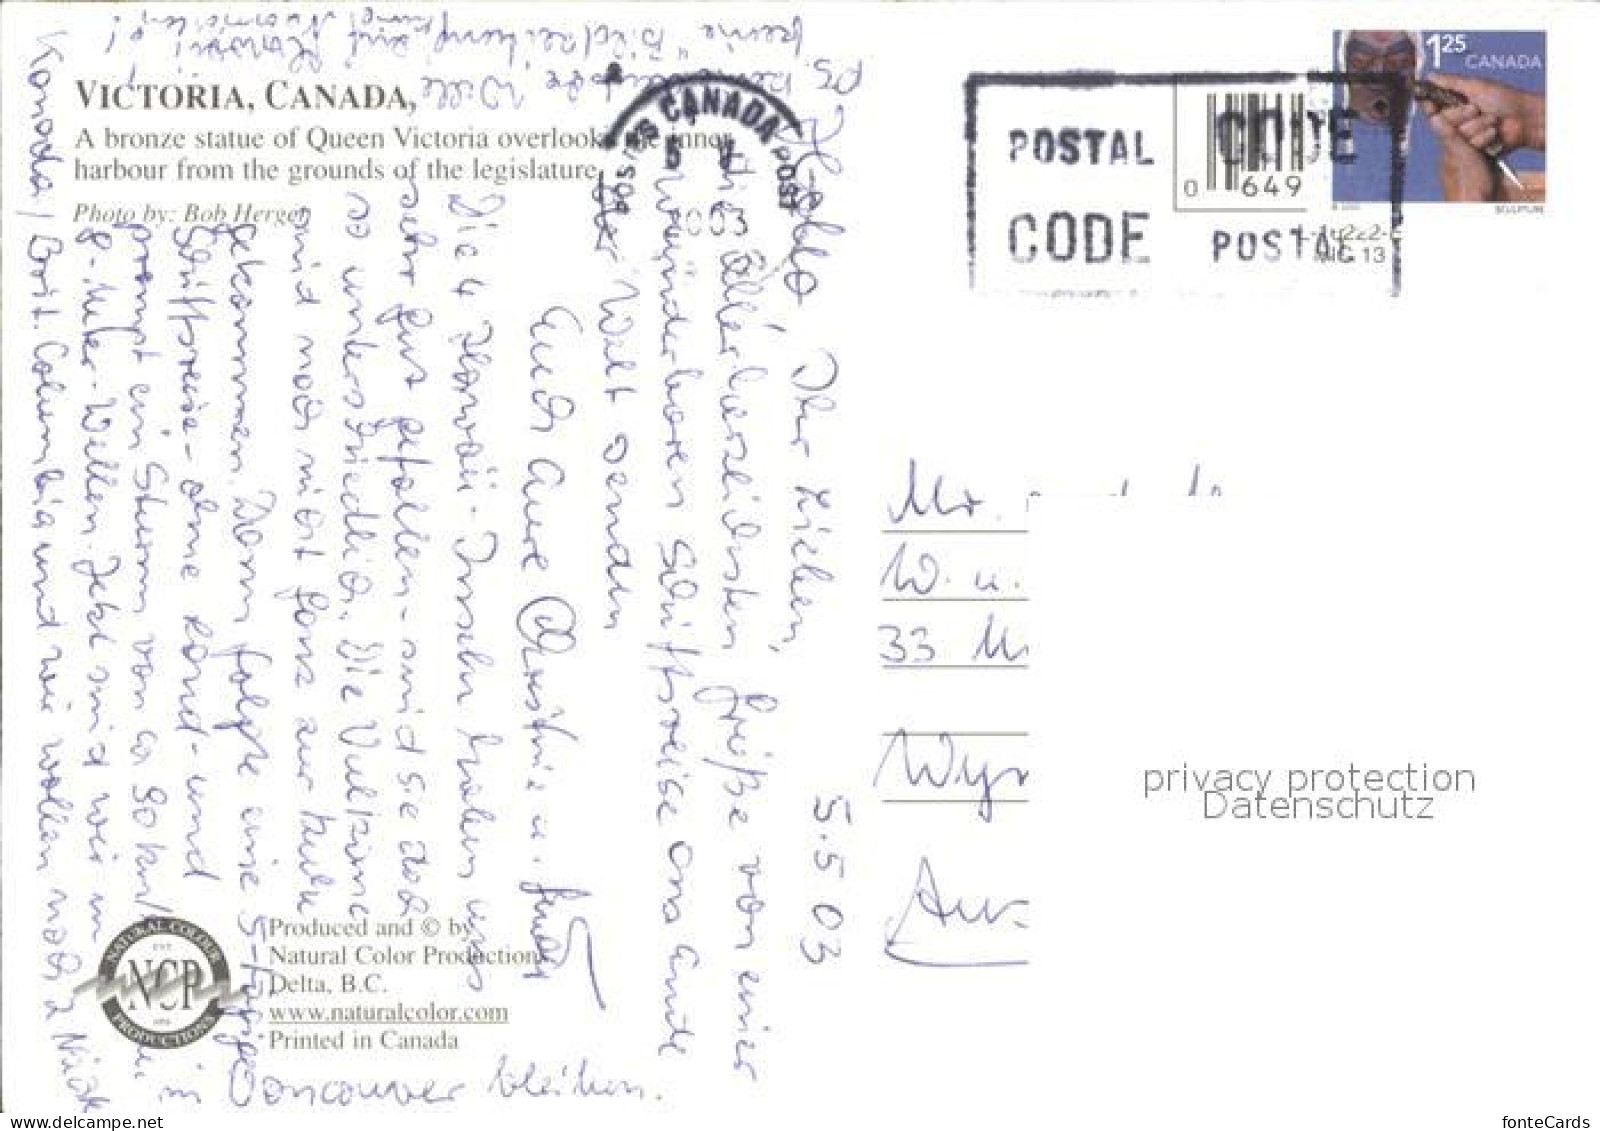 VICTORIA, CANADA,
A bronze statue of Queen Victoria overlooks the inner
harbour from the grounds of the legislature.
Photo by: Bob Herger
Hallo Ihr Lieben, 5.5 03
die allerherzlichsten Grüße von einer
wunderbaren Schiffsreise ans Ende
der Welt senden
Euch Eure Christine u.
Die 4 Hawaii-Inseln haben uns
sehr gut gefallen - sind sie doch
so unterschiedlich. Die Vulkane
sind noch nicht ganz zur Ruhe
gekommen. Dann folgte eine 5-tägige
Schiffsreise - ohne Land- und
prompt ein Sturm von ca 90 km/ in
8-Meter-Wellen. Jetzt sind wir in
Kanada / Brit. Columbia und wir wollen noch 2 Nächte
Vancouver bleiben.
PS.
CANADA
POST
POSTES
5 V
POSTAL
CODE
CODE
POSTAL
0
649
1 25 CANADA
SCULPTURE
Mr.
W. u.
33
privacy protection
Datenschutz
NATURAL COLOUR
EST
NCP
PRODUCTIONS
Produced and © by
Natural Color Productions
Delta, B.C.
www.naturalcolor.com
Printed in Canada
www.ansichtskartenversand.com
fonteCards